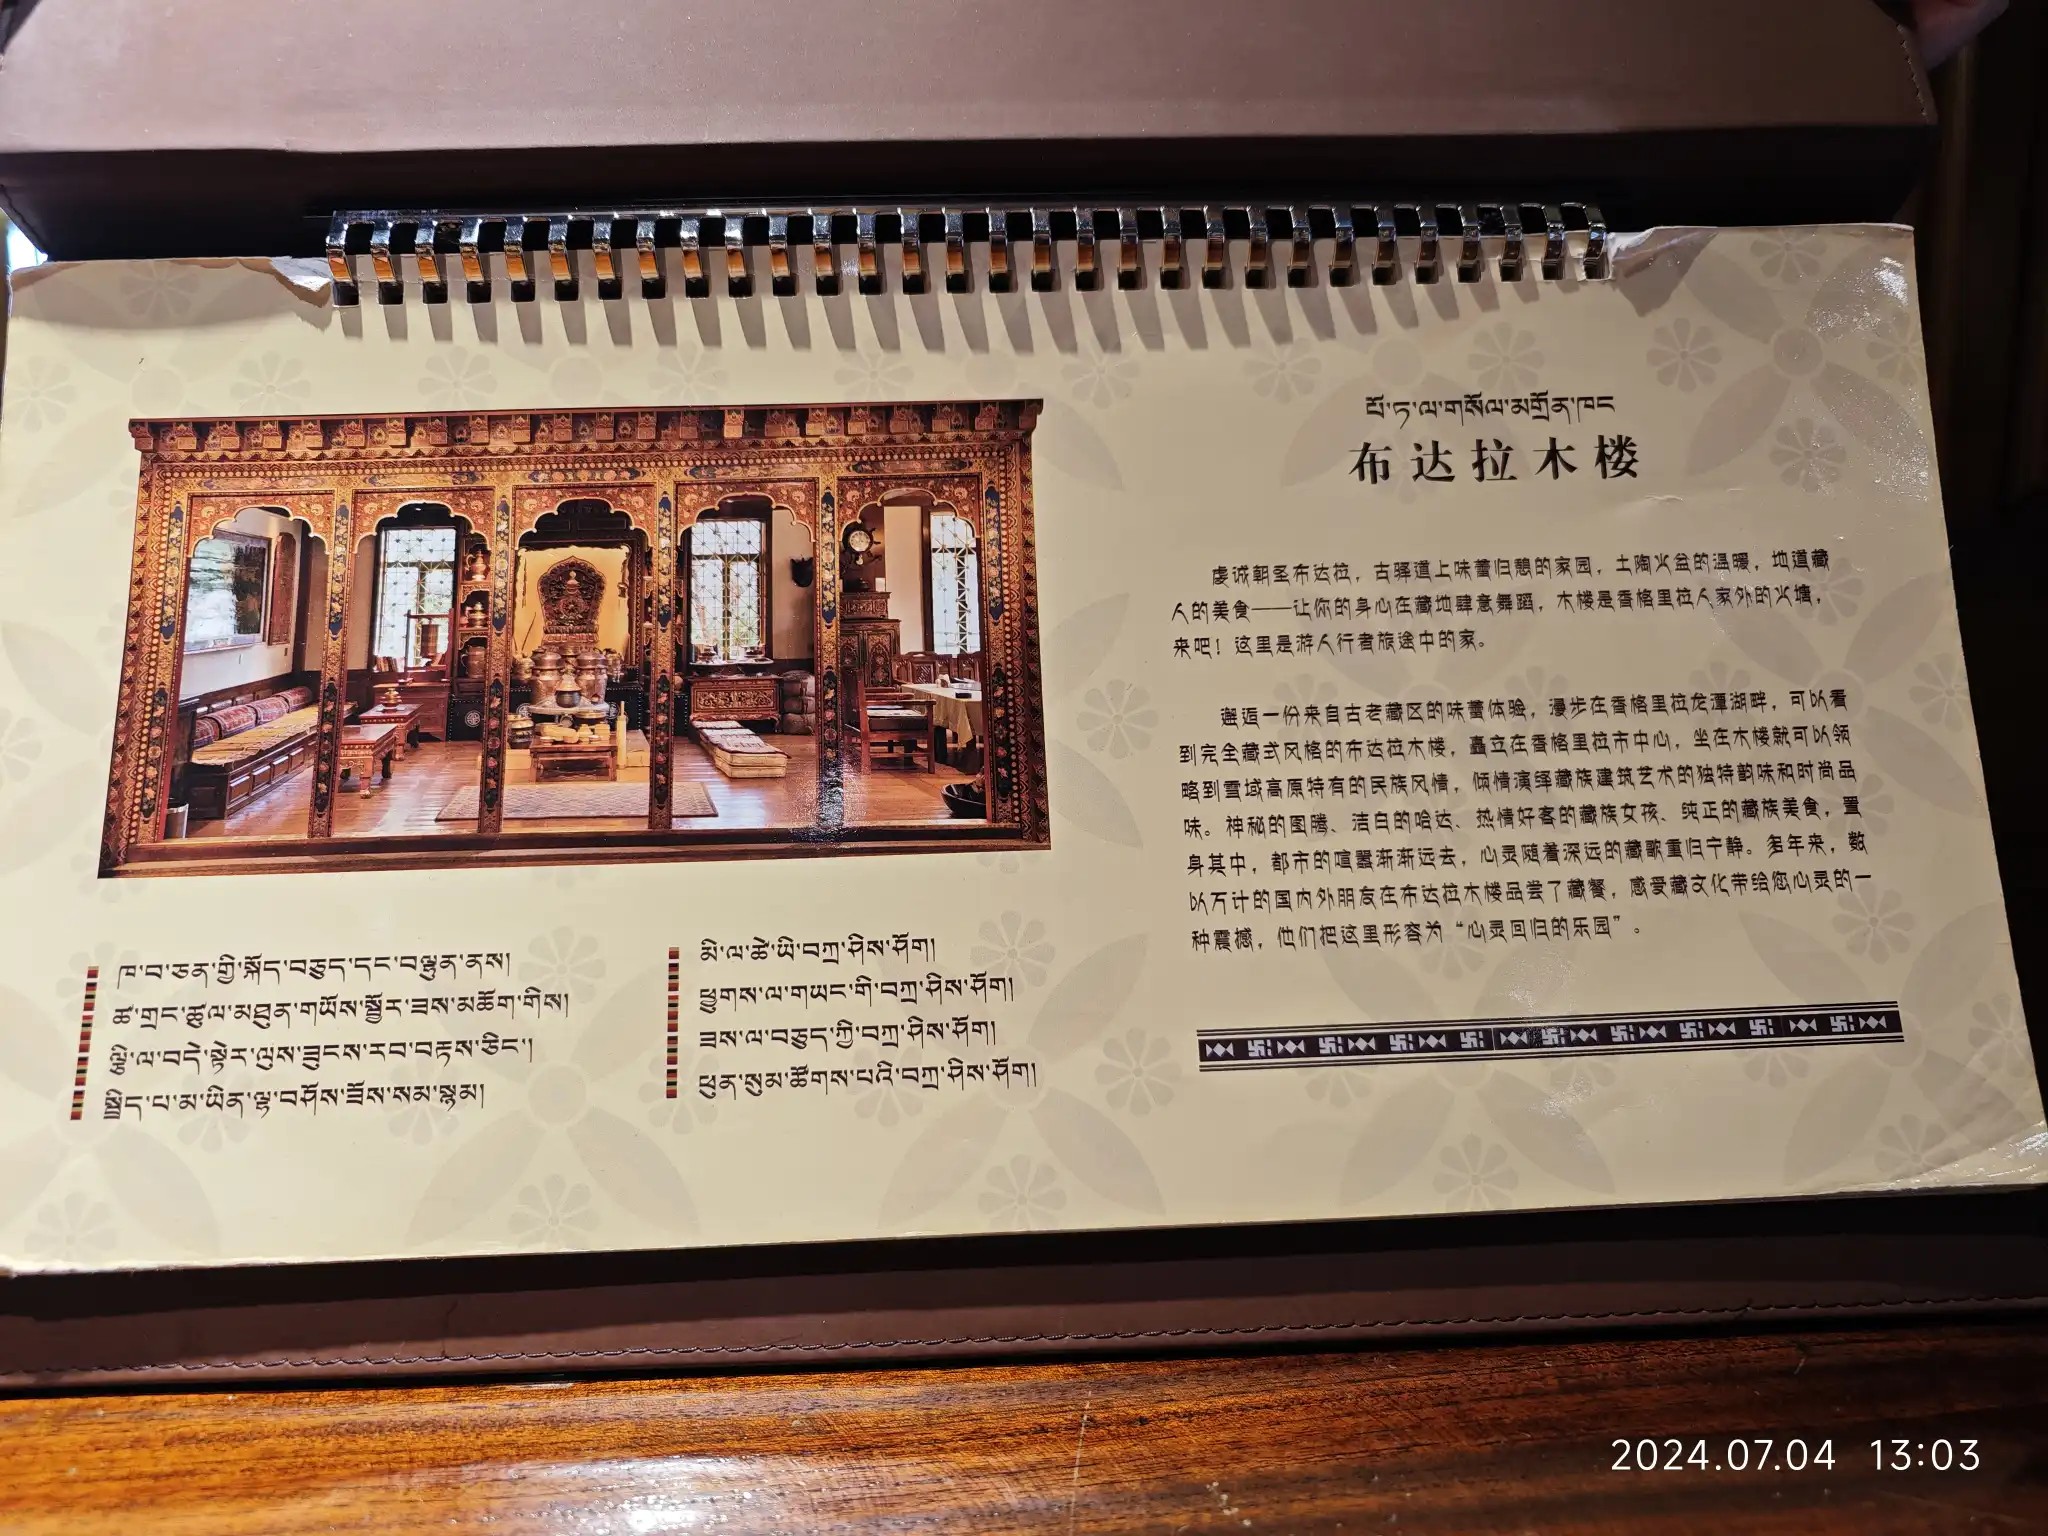 པོ་ཏ་ལ་གསོལ་མགྲོན་ཁང
布达拉木楼
虔诚朝圣布达拉，古驿道上味蕾归憩的家园，土陶火盆的温暖，地道藏
人的美食——让你的身心在藏地肆意舞蹈，木楼是香格里拉人家外的火塘，
来吧！这里是游人行者旅途中的家。
邂逅一份来自古老藏区的味蕾体验，漫步在香格里拉龙潭湖畔，可以看
到完全藏式风格的布达拉木楼，矗立在香格里拉市中心，坐在木楼就可以领
略到雪域高原特有的民族风情，倾情演绎藏族建筑艺术的独特韵味和时尚品
味。神秘的图腾、洁白的哈达、热情好客的藏族女孩、纯正的藏族美食，置
身其中，都市的喧嚣渐渐远去，心灵随着深远的藏歌重归宁静。多年来，数
以万计的国内外朋友在布达拉木楼品尝了藏餐，感受藏文化带给您心灵的一
种震撼，他们把这里形容为“心灵回归的乐园”。
ཁ་བ་ཅན་གྱི་སྣོད་བཅུད་དང་བལྟུན་ནས།
ཚ་གྲང་ཚུལ་མཐུན་གཡོས་སྦྱོར་ཟས་མཆོག་གིས།
ལྕེ་ལ་བདེ་སྟེར་ལུས་ཟུངས་རབ་བརྟས་ཅིང་།
སྲིད་པ་མ་ཡིན་ལྷ་བཤོས་ཟོས་སམ་སྙམ།
མི་ལ་ཚེ་ཡི་བཀྲ་ཤིས་ཤོག།
ཕྱུགས་ལ་གཡང་གི་བཀྲ་ཤིས་ཤོག།
ཟས་ལ་བཅུད་ཀྱི་བཀྲ་ཤིས་ཤོག།
ཕུན་སུམ་ཚོགས་པའི་བཀྲ་ཤིས་ཤོག།
2024.07.04 13:03